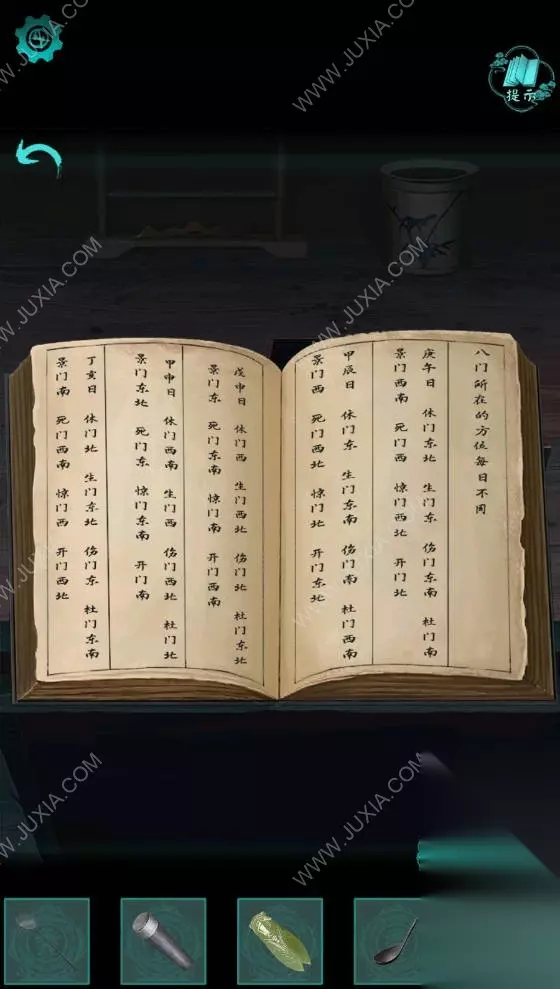 提示
八门所在的方位每日不同
庚午日 休门东北 生门东 伤门东 杜门南
景门西南 死门西 惊门西北 开门北
甲辰日 休门东 生门东北 伤门南 杜门西南
景门西 死门西北 惊门北 开门东北
戊申日 休门西 生门西北 伤门北 杜门东北
景门东 死门东南 惊门南 开门西南
甲申日 休门西南 生门西 伤门西北 杜门北
景门东北 死门东 惊门东南 开门南
丁亥日 休门北 生门东北 伤门东 杜门东南
景门南 死门西南 惊门西 开门西北
WWW.JUXIA.COM
WWW.JUXIA.COM
WWW.JUXIA.COM
WWW.JUXIA.COM
WWW.JUXIA.COM